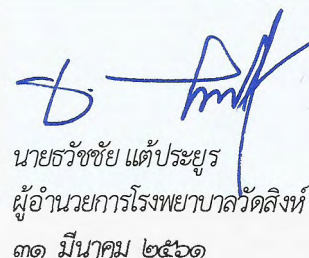 นายธวัชชัย แต้ประยูร
ผู้อำนวยการโรงพยาบาลวัดสิงห์
๓๑ มีนาคม ๒๕๖๑